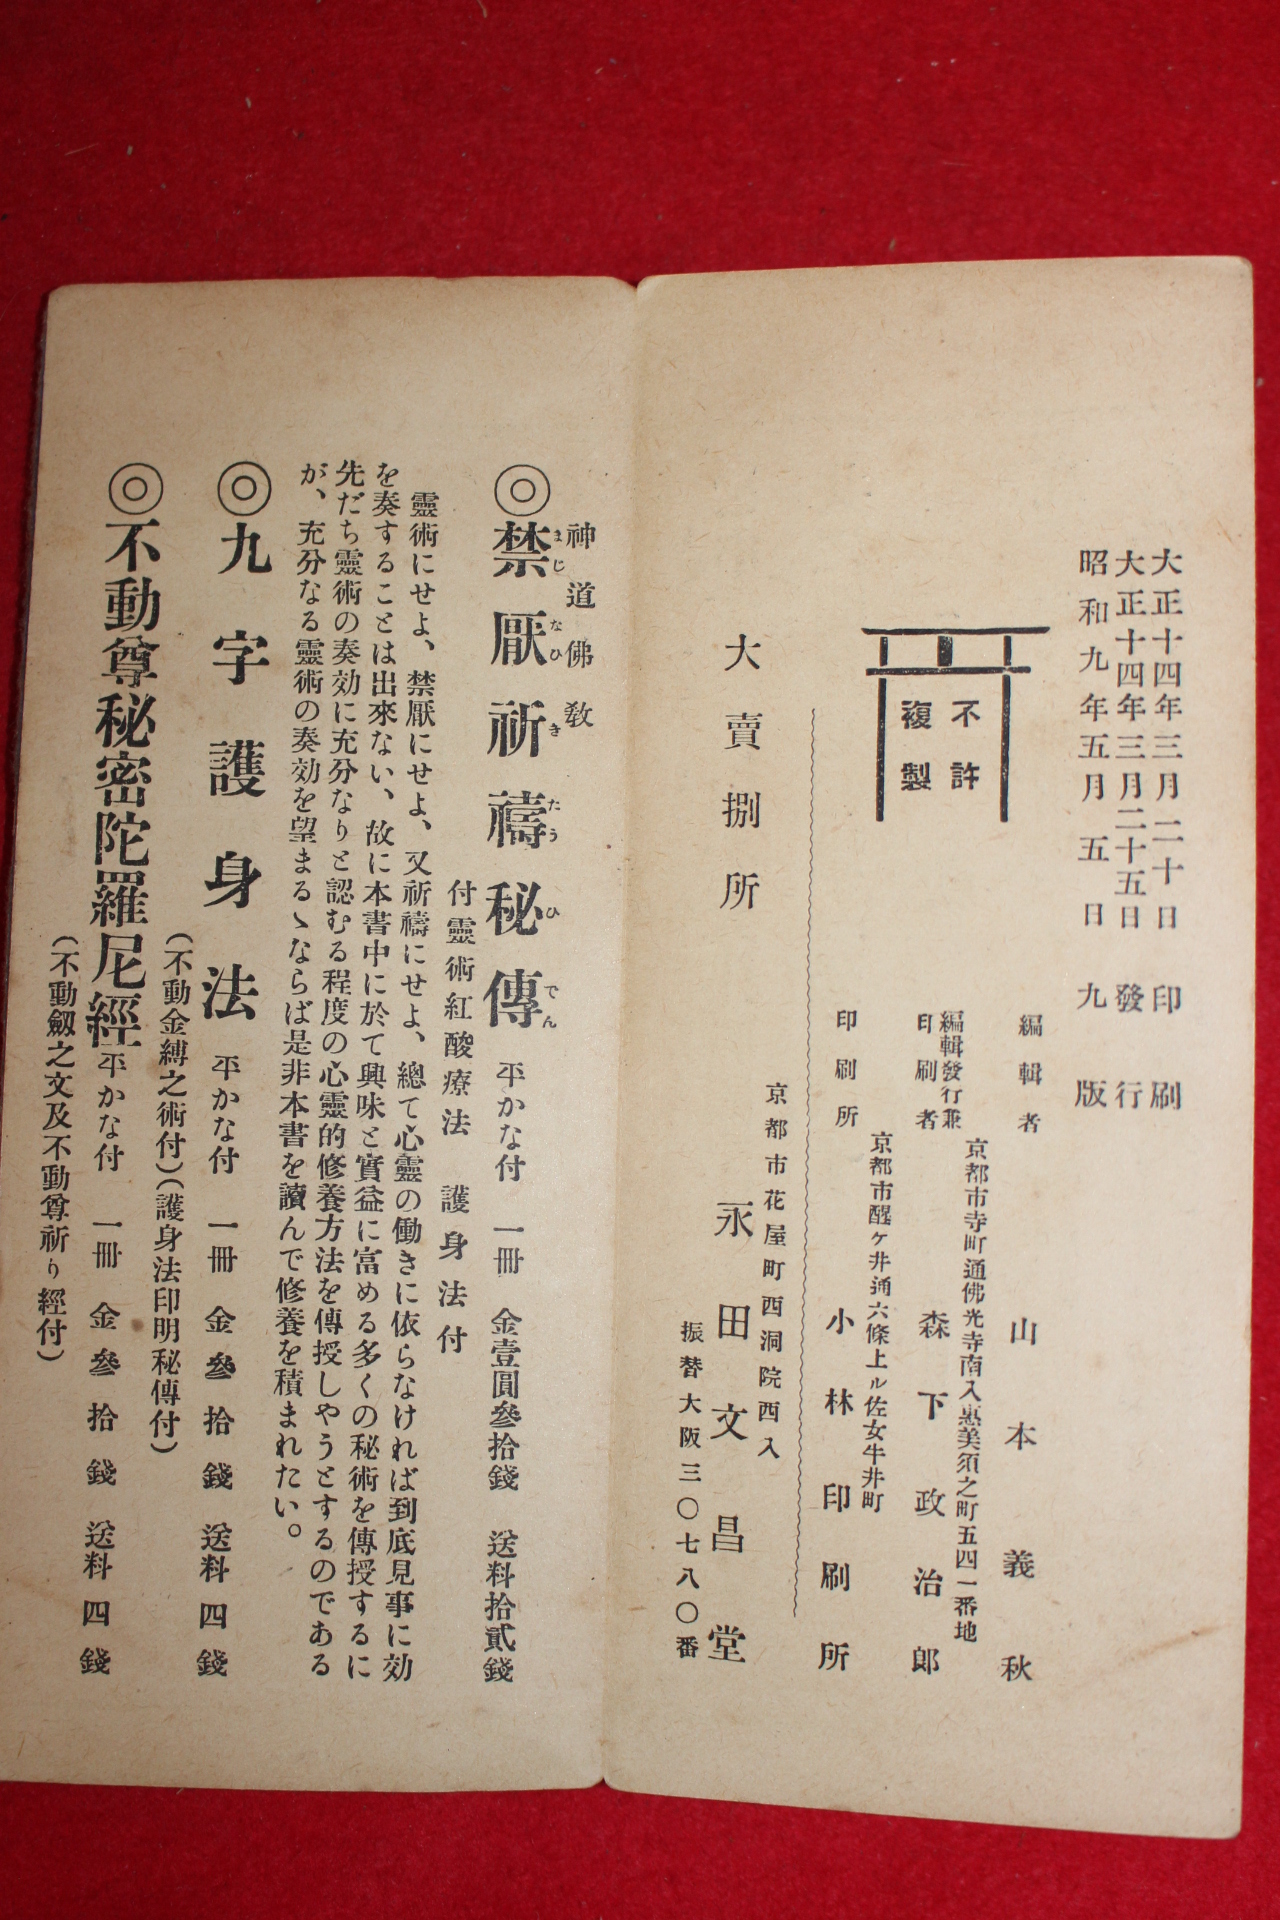 大正十四年三月二十日印刷
大正十四年三月二十五日發行
昭和九年五月五日九版
不許
複製
編輯者　山本義秋
京都市寺町通佛光寺南入惠美須之町五四一番地
編輯發行兼
印刷者　森下政治郎
京都市醒ケ井通六條上ル佐女牛井町
印刷所　小林印刷所
大賣捌所
京都市花屋町西洞院西入
永田文昌堂
振替大阪三〇七八〇番
神道佛教
◎禁厭祈禱秘傳　平かな付　一冊　金壹圓參拾錢　送料拾貳錢
まじなひきたうひでん
付靈術紅酸療法　護身法付
靈術にせよ、禁厭にせよ、又祈禱にせよ、總て心靈の働きに依らなければ到底見事に効
を奏することは出來ない、故に本書中に於て興味と實益に富める多くの秘術を傳授するに
先だち靈術の奏効に充分なりと認むる程度の心靈的修養方法を傳授しやうとするのである
が、充分なる靈術の奏効を望まるゝならば是非本書を讀んで修養を積まれたい。
◎九字護身法　平かな付　一冊　金參拾錢　送料四錢
（不動金縛之術付）（護身法印明秘傳付）
◎不動尊秘密陀羅尼經　平かな付　一冊　金參拾錢　送料四錢
（不動劔之文及不動尊祈り經付）